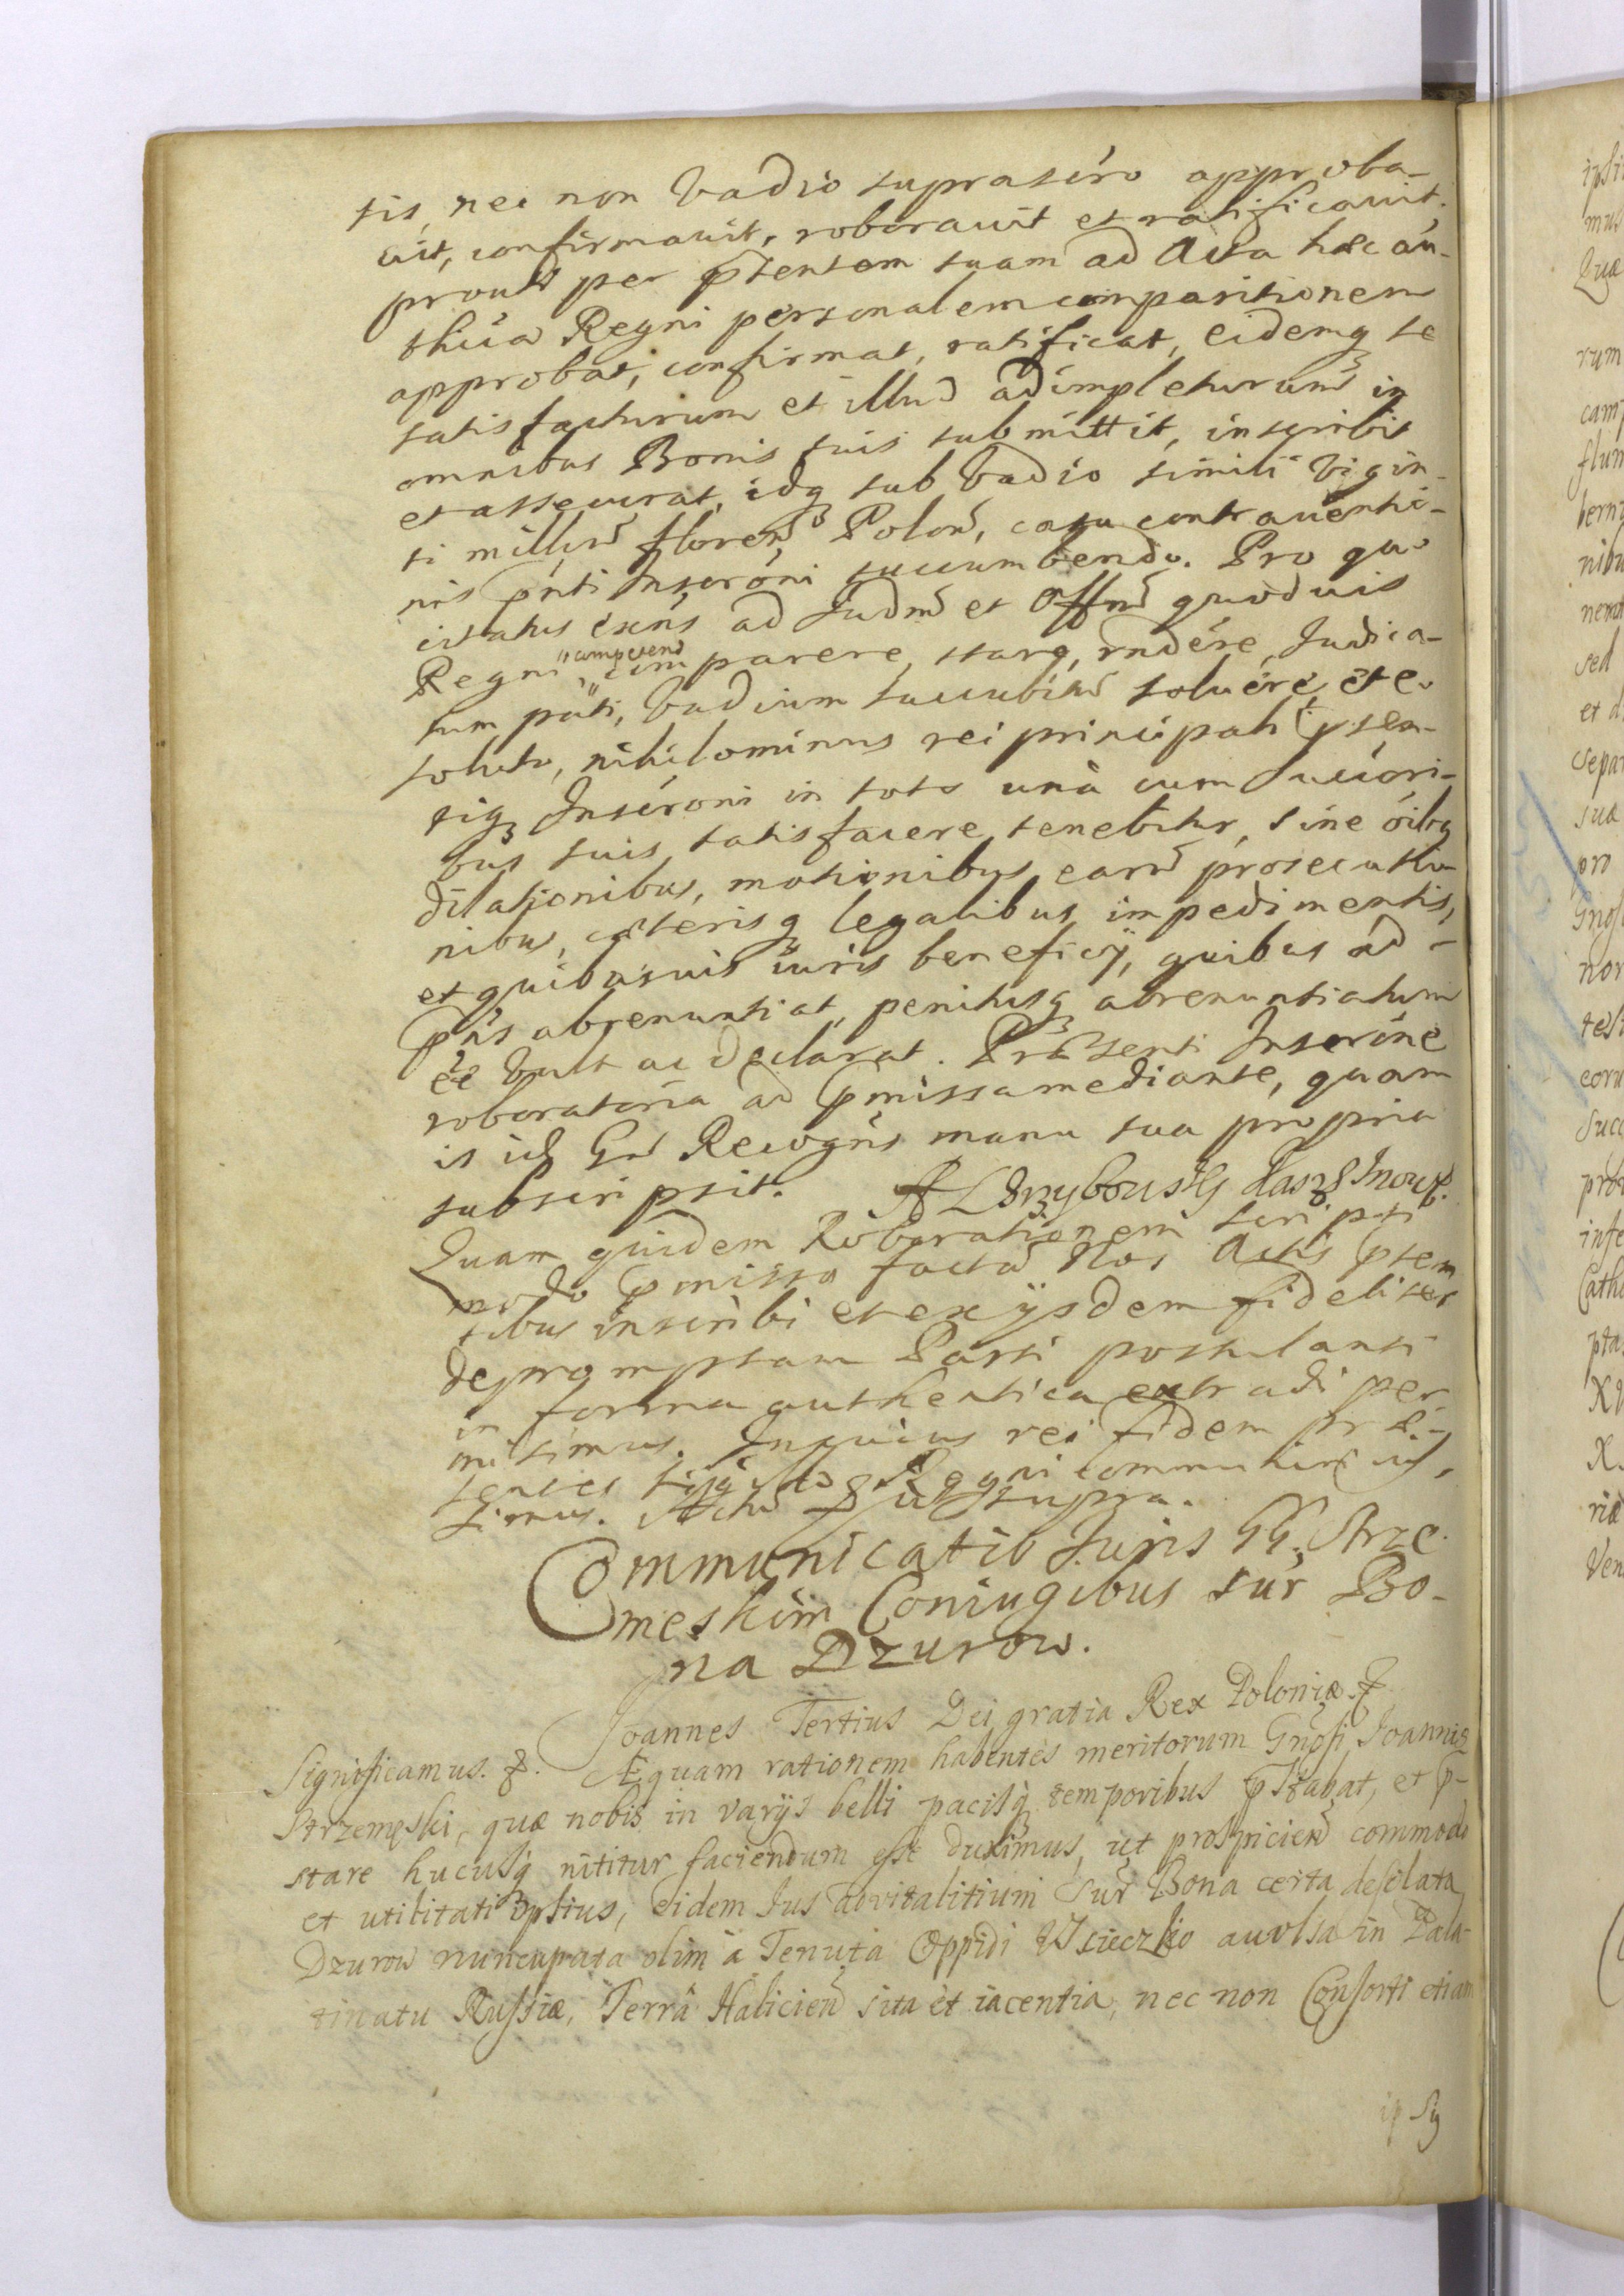 tis, nec non Vadio suprascro approba-
vit, confirmavit, roboravit et ratificavit.
prout per pstentem suam ad Acta hæc an-
thica Regni personalem comparitionem
approbat, confirmat, ratificat, eidemq se
satisfacturum et illud adimpleturum in
omnibus Bonis suis submittit, inscribit
et assecurat, idq sub Vadio simili Vigin-
ti millium floren Polon, casu contraventio-
nis pnti Inscroni succumbendo. Pro quo
citatus exns ad Judm et Offm quodvis
Regni competen parere, stare, rndére, Judica-
tum pati, Vadium succubitum soluere, et eo
soluto, nihilominus rei principali psen-
tiq Inscroni in toto unà cum Succori-
bus suis satisfacere tenebitur, sine oibq
dilationibus, motionibus, earum prosecutio-
nibus, cæterisq legalibus impedimentis,
et quibusvis iuris beneficij, quibus ad
pns abrenuntiat, penitusq abrenuntiatum
ee Vult ac declarat. Præsenti Inscrone
roboratoria ad pmissa mediante, quam
is id Gn Recogns manu sua propria
subscripsit.
Quam quidem Roborationem scripti
modo pmisso factam Nos Actis psen
tibus inscribi et ex ijsdem fideliter
depromptam Parti postulanti
in forma authentica extradi per
misimus. In cuius rei fidem præ-
sentes sigillo Regni communiri ius,
simus. Actum ut supra.
Communicatio Juris GG. Strze
meskim Coniugibus sur Bo-
na Dzurow.
Joannes Tertius Dei gratia Rex Poloniæ &
Significamus. &. Æquam rationem habentes meritorum Gnosi Joannis
Strzemęski, quæ nobis in varijs belli pacisq temporibus pstabat, et p-
stare hucusq nititur faciendum esse duximus, ut prospiciend commodo
et utilitati ipsius, eidem Jus advitalitium sur Bona certa desolata
Dzurow nuncupata olim à Tenuta Oppidi Uscieczko auulsa in Pala-
tinatu Russiæ, Terrâ Halicien sita et iacentia, nec non Consorti etiam
ipsiq